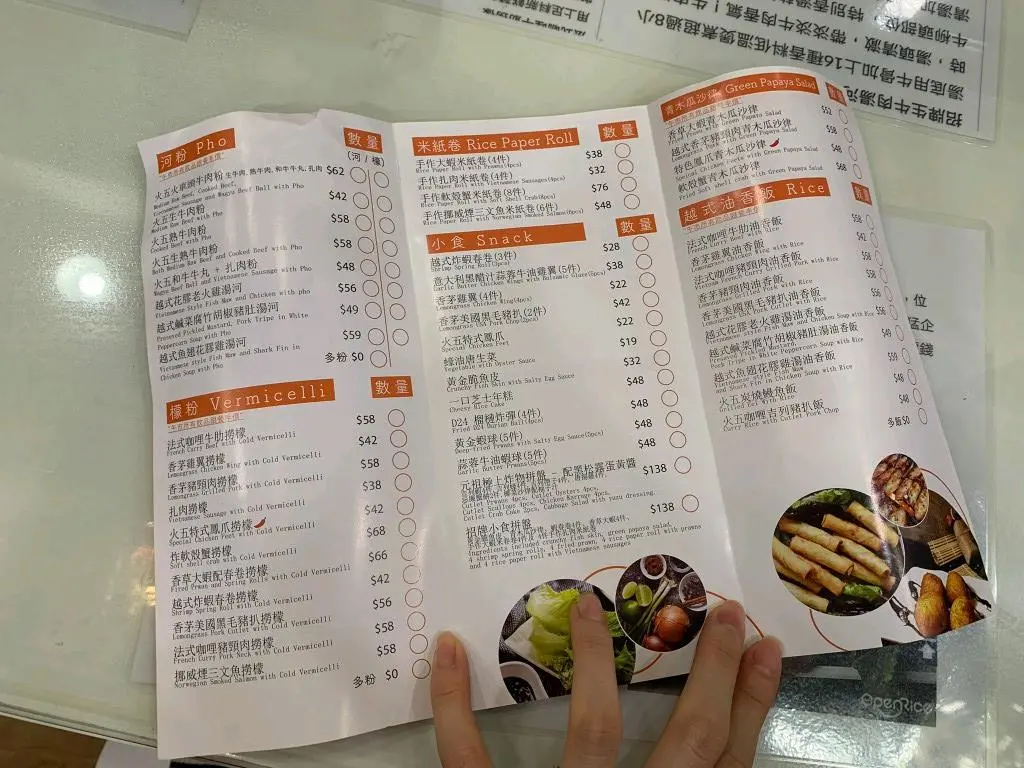 河粉 Pho
數量
(河 / 檬)
火五火車頭牛肉粉 生牛肉, 熟牛肉, 和牛牛丸, 扎肉 $62
Medium Raw Beef, Cooked Beef,
Vietnamese Sausage and Wagyu Beef Ball with Pho
火五生牛肉粉 $42
Medium Raw Beef with Pho
火五熟牛肉粉 $58
Cooked Beef with Pho
火五生熟牛肉粉 $58
Both Medium Raw Beef and Cooked Beef with Pho
火五和牛牛丸 + 扎肉粉 $48
Wagyu Beef Ball and Vietnamese Sausage with Pho
越式花膠老火雞湯河 $56
Vietnamese Style Fish Maw and Chicken with pho
越式鹹菜腐竹胡椒豬肚湯河 $49
Preseved Pickled Mustard, Pork Tripe in White
Peppercorn Soup with Pho
越式魚翅花膠雞湯河 $59
Vietnamese style Fish Maw and Shark Fin in
Chicken Soup with Pho
多粉 $0
檬粉 Vermicelli
數量
法式咖哩牛肋撈檬 $58
French Curry Beef with Cold Vermicelli
香茅雞翼撈檬 $42
Lemongrass Chicken Wing with Cold Vermicelli
香茅豬頸肉撈檬 $58
Lemongrass Grilled Pork with Cold Vermicelli
扎肉撈檬 $38
Vietnamese Sausage with Cold Vermicelli
火五特式鳳爪撈檬 $52
Special Chicken Feet with Cold Vermicelli
炸軟殼蟹撈檬 $68
Soft shell crab with Cold Vermicelli
香草大蝦配春卷撈檬 $66
Fired Prman and Spring Rolls with Cold Vermicelli
越式炸蝦春卷撈檬 $42
Shrimp Spring Roll with Cold Vermicelli
香茅美國黑毛豬扒撈檬 $56
Lemongrass Pork Cutlet with Cold Vermicelli
法式咖哩豬頸肉撈檬 $58
French Curry Pork Neck with Cold Vermicelli
挪威煙三文魚撈檬 $58
Norwegian Smoked Salmon with Cold Vermicelli
多粉 $0
米紙卷 Rice Paper Roll
數量
手作大蝦米紙卷(4件) $38
Rice Paper Roll with Prawns(4pcs)
手作扎肉米紙卷(4件) $32
Rice Paper Roll with Vietnamese Sausages(4pcs)
手作軟殼蟹米紙卷(8件) $76
Rice Paper Roll with Soft Shell Crab(8pcs)
手作挪威煙三文魚米紙卷(6件) $48
Rice Paper Roll with Norwegian Smoked Salmon(6pcs)
小食 Snack
數量
越式炸蝦春卷(3件) $28
Shrimp Spring Roll(3pcs)
意大利黑醋汁蒜蓉牛油雞翼(5件) $38
Garlic Butter Chicken Wings with Balsamic Glaze(5pcs)
香茅雞翼(4件) $22
Lemongrass Chicken Wing(4pcs)
香茅美國黑毛豬扒(2件) $42
Lemongrass USA Pork Chop(2pcs)
火五特式鳳爪 $22
Special Chicken Feet
蠔油唐生菜 $19
Vegetable with Oyster Sauce
黃金脆魚皮 $32
Crunchy Fish Skin with Salty Egg Sauce
一口芝士年糕 $48
Cheesy Rice Cake
D24 榴槤炸彈(4件) $48
Fried D24 Durian Ball(4pcs)
黃金蝦球(5件) $48
Deep-fried Prwans with Salty Egg Sauce(5pcs)
蒜蓉牛油蝦球(5件) $48
Garlic Butter Prwans(5pcs)
元祖極上炸物拼盤 - 配黑松露蛋黃醬 $138
Cutlet Prwans 4pcs, Cutlet Oysters 4pcs,
Cutlet Scallops 4pcs, Chicken Karrage 4pcs,
Cutlet Crab Cake 2pcs, Cabbage Salad with yuzu dressing.
招牌小食拼盤 $138
Ingredients include crunchy fish skin, green papaya salad,
4 shrimp spring rolls, 4 fried prown, 4 rice paper roll with prowns
and 4 rice paper roll with Vietnamese sausages
青木瓜沙律 Green Papaya Salad
數量
香草大蝦青木瓜沙律 $52
Fried Prawns with Green Papaya Salad
越式香茅豬頸肉青木瓜沙律 $58
Lemongrass Pork with Green Papaya Salad
特色鳳爪青木瓜沙律 $48
Special Chicken Feets with Green Papaya Salad
軟殼蟹青木瓜沙律 $68
Fried Soft shell crab with Green Papaya Salad
越式油香飯 Rice
數量
法式咖哩牛肋油香飯 $58
French Curry Beef with Rice
香茅雞翼油香飯 $42
Lemongrass Chicken Wing with Rice
法式咖哩豬頸肉油香飯 $58
Vietnam French Curry Grilled Pork with Rice
香茅豬頸肉油香飯 $58
Lemongrass Grilled Pork with Rice
香茅美國黑毛豬扒油香飯 $56
Lemongrass USA Pork Cutlet with Rice
越式花膠老火雞湯油香飯 $56
Vietnamese Style Fish Maw and Chicken Soup with Rice
越式鹹菜腐竹胡椒豬肚湯油香飯 $49
Preseved Pickled Mustard,
Pork Tripe in White Peppercorn Soup with Rice
越式魚翅花膠雞湯油香飯 $59
Vietnamese style Fish Maw
and Shark Fin in Chicken Soup with Rice
火五炭燒鰻魚飯 $48
Grilled Eel with Rice
火五咖哩吉列豬扒飯 $48
Curry Rice with Cutlet Pork Chop
多飯 $0
招牌生牛肉湯河
湯底用牛骨加上16種香料低溫煲煮超過8小
OpenRice